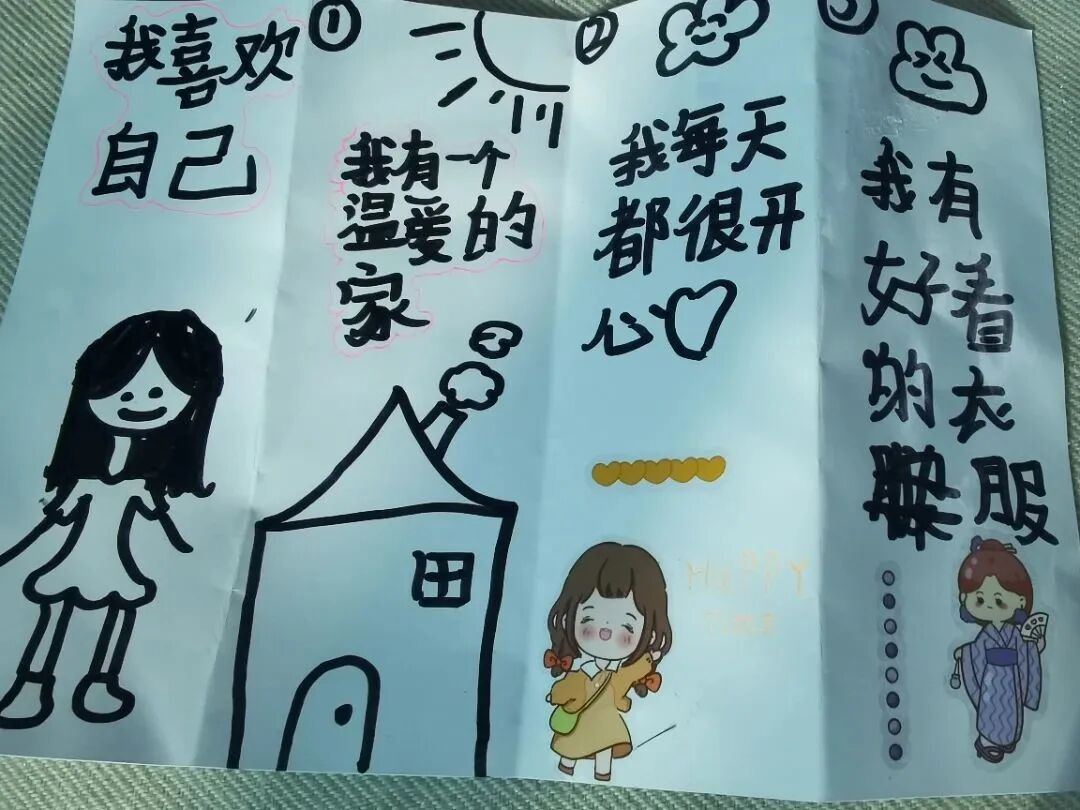 我喜欢
自己
①
我有一个
温暖的
家
②
我每天
都很开
心
HAPPY
③
我有
好看
的衣
服